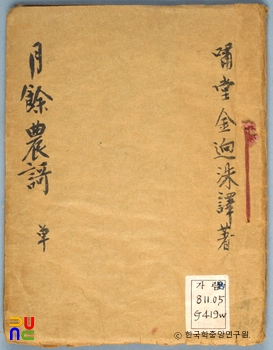 嘯堂金逈洙譯著
月餘農謌 單
가람
811.05
G419w
ⓒ 한국학중앙연구원